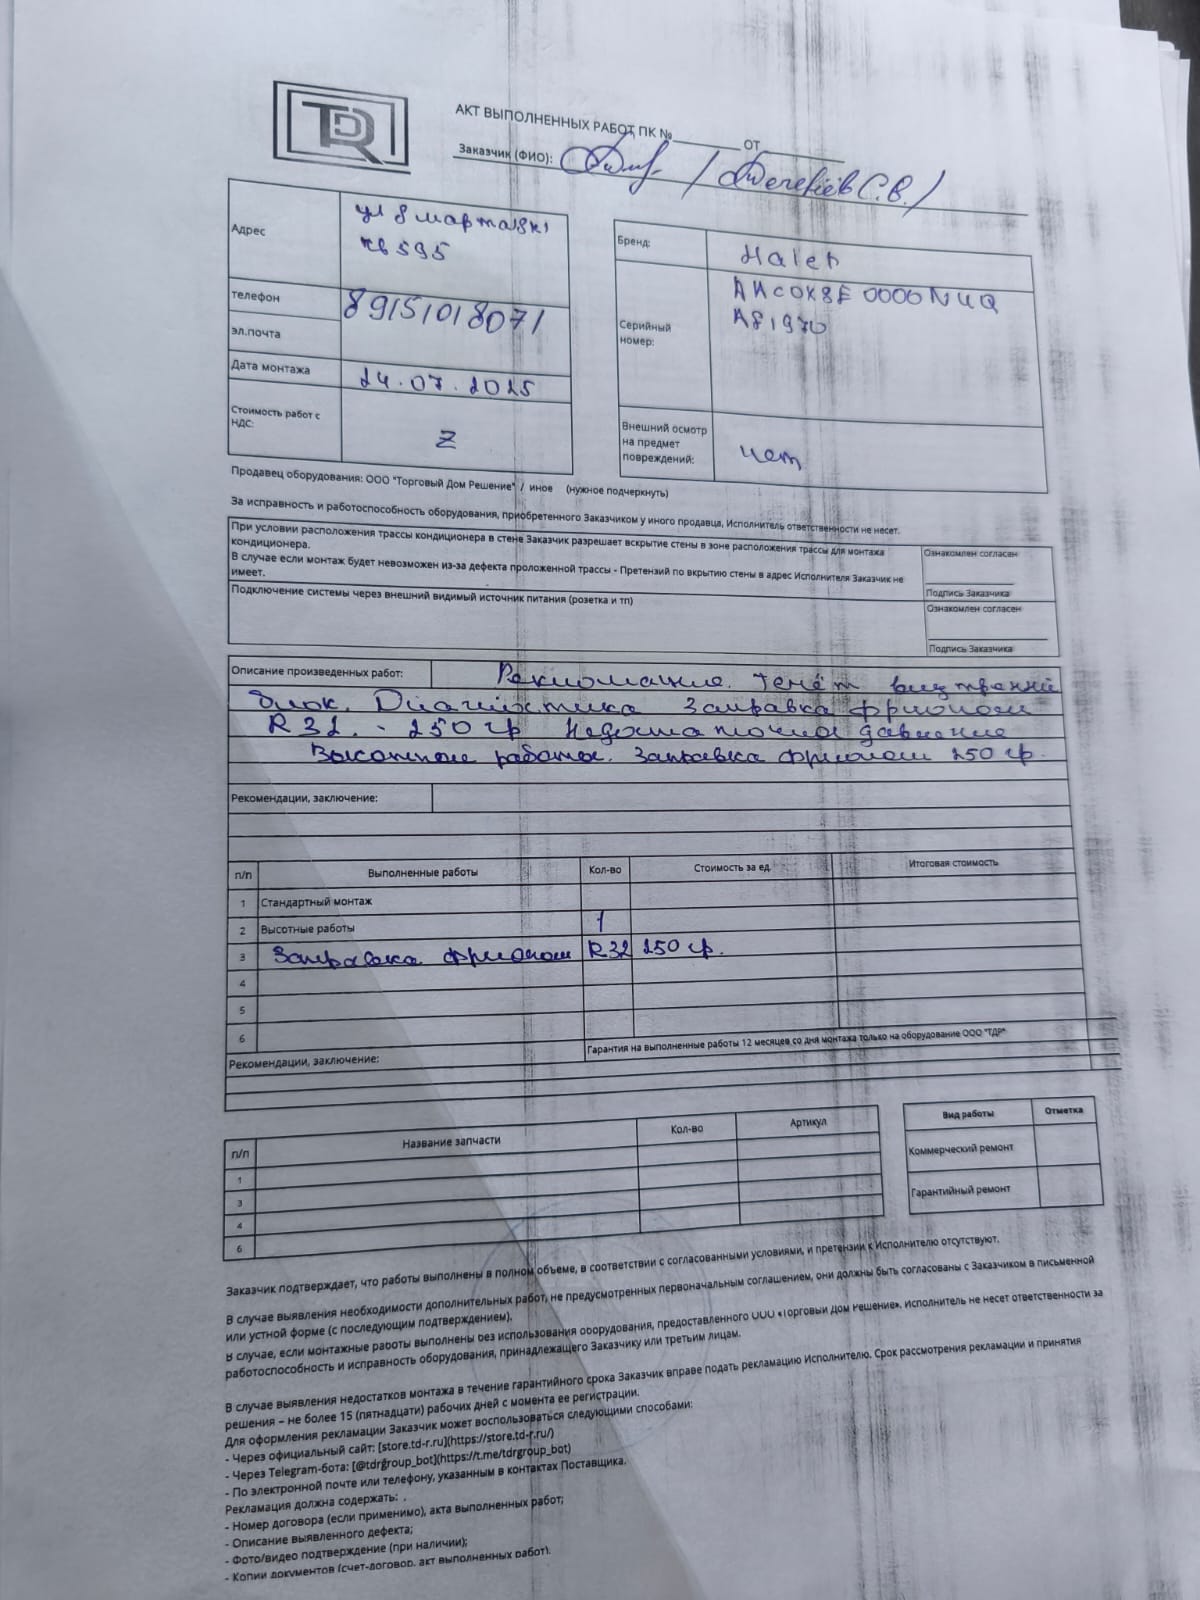 TDR
АКТ ВЫПОЛНЕННЫХ РАБОТ, ПК № ОТ
Заказчик (ФИО): С.В.
Адрес
ул 8 марта
кв 595
телефон
89151018071
эл.почта
Дата монтажа
24.07.2025
Стоимость работ с НДС:
Z
Бренд:
Haier
Серийный
номер:
AAC0K8E0000NUQ
A81970
Внешний осмотр
на предмет
повреждений:
нет
Продавец оборудования: ООО "Торговый Дом Решение" / иное (нужное подчеркнуть)
За исправность и работоспособность оборудования, приобретенного Заказчиком у иного продавца, Исполнитель ответственности не несет.
При условии расположения трассы кондиционера в стене Заказчик разрешает вскрытие стены в зоне расположения трассы для монтажа
кондиционера.
В случае если монтаж будет невозможен из-за дефекта проложенной трассы - Претензий по вкрытию стены в адрес Исполнителя Заказчик не
имеет.
Ознакомлен согласен
Подпись Заказчика
Подключение системы через внешний видимый источник питания (розетка и тп)
Ознакомлен согласен
Подпись Заказчика
Описание произведенных работ: Рекломация. Течёт внутренний
блок. Диагностика Заправка фрионом
R 32. - 250 гр Недостаточное давление
Высотные работы. Заправка фрионом 250 гр.
Рекомендации, заключение:
п/п Выполненные работы Кол-во Стоимость за ед Итоговая стоимость
1 Стандартный монтаж
2 Высотные работы 1
3 Заправка фрионом R32 250 гр.
4
5
6
Рекомендации, заключение: Гарантия на выполненные работы 12 месяцев со дня монтажа только на оборудование ООО "ТДР"
п/п Название запчасти Кол-во Артикул
1
3
4
6
Вид работы Отметка
Коммерческий ремонт
Гарантийный ремонт
Заказчик подтверждает, что работы выполнены в полном объеме, в соответствии с согласованными условиями, и претензии к Исполнителю отсутствуют.
В случае выявления необходимости дополнительных работ, не предусмотренных первоначальным соглашением, они должны быть согласованы с Заказчиком в письменной
или устной форме (с последующим подтверждением).
В случае, если монтажные работы выполнены без использования оборудования, предоставленного ООО «Торговый Дом Решение». Исполнитель не несет ответственности за
работоспособность и исправность оборудования, принадлежащего Заказчику или третьим лицам.
В случае выявления недостатков монтажа в течение гарантийного срока Заказчик вправе подать рекламацию Исполнителю. Срок рассмотрения рекламации и принятия
решения – не более 15 (пятнадцати) рабочих дней с момента ее регистрации.
Для оформления рекламации Заказчик может воспользоваться следующими способами:
- Через официальный сайт: [store.td-r.ru](https://store.td-r.ru/)
- Через Telegram-бота: [@tdrgroup_bot](https://t.me/tdrgroup_bot)
- По электронной почте или телефону, указанным в контактах Поставщика.
Рекламация должна содержать:
- Номер договора (если применимо), акта выполненных работ;
- Описание выявленного дефекта;
- Фото/видео подтверждение (при наличии);
- Копии документов (счет-договор, акт выполненных работ).